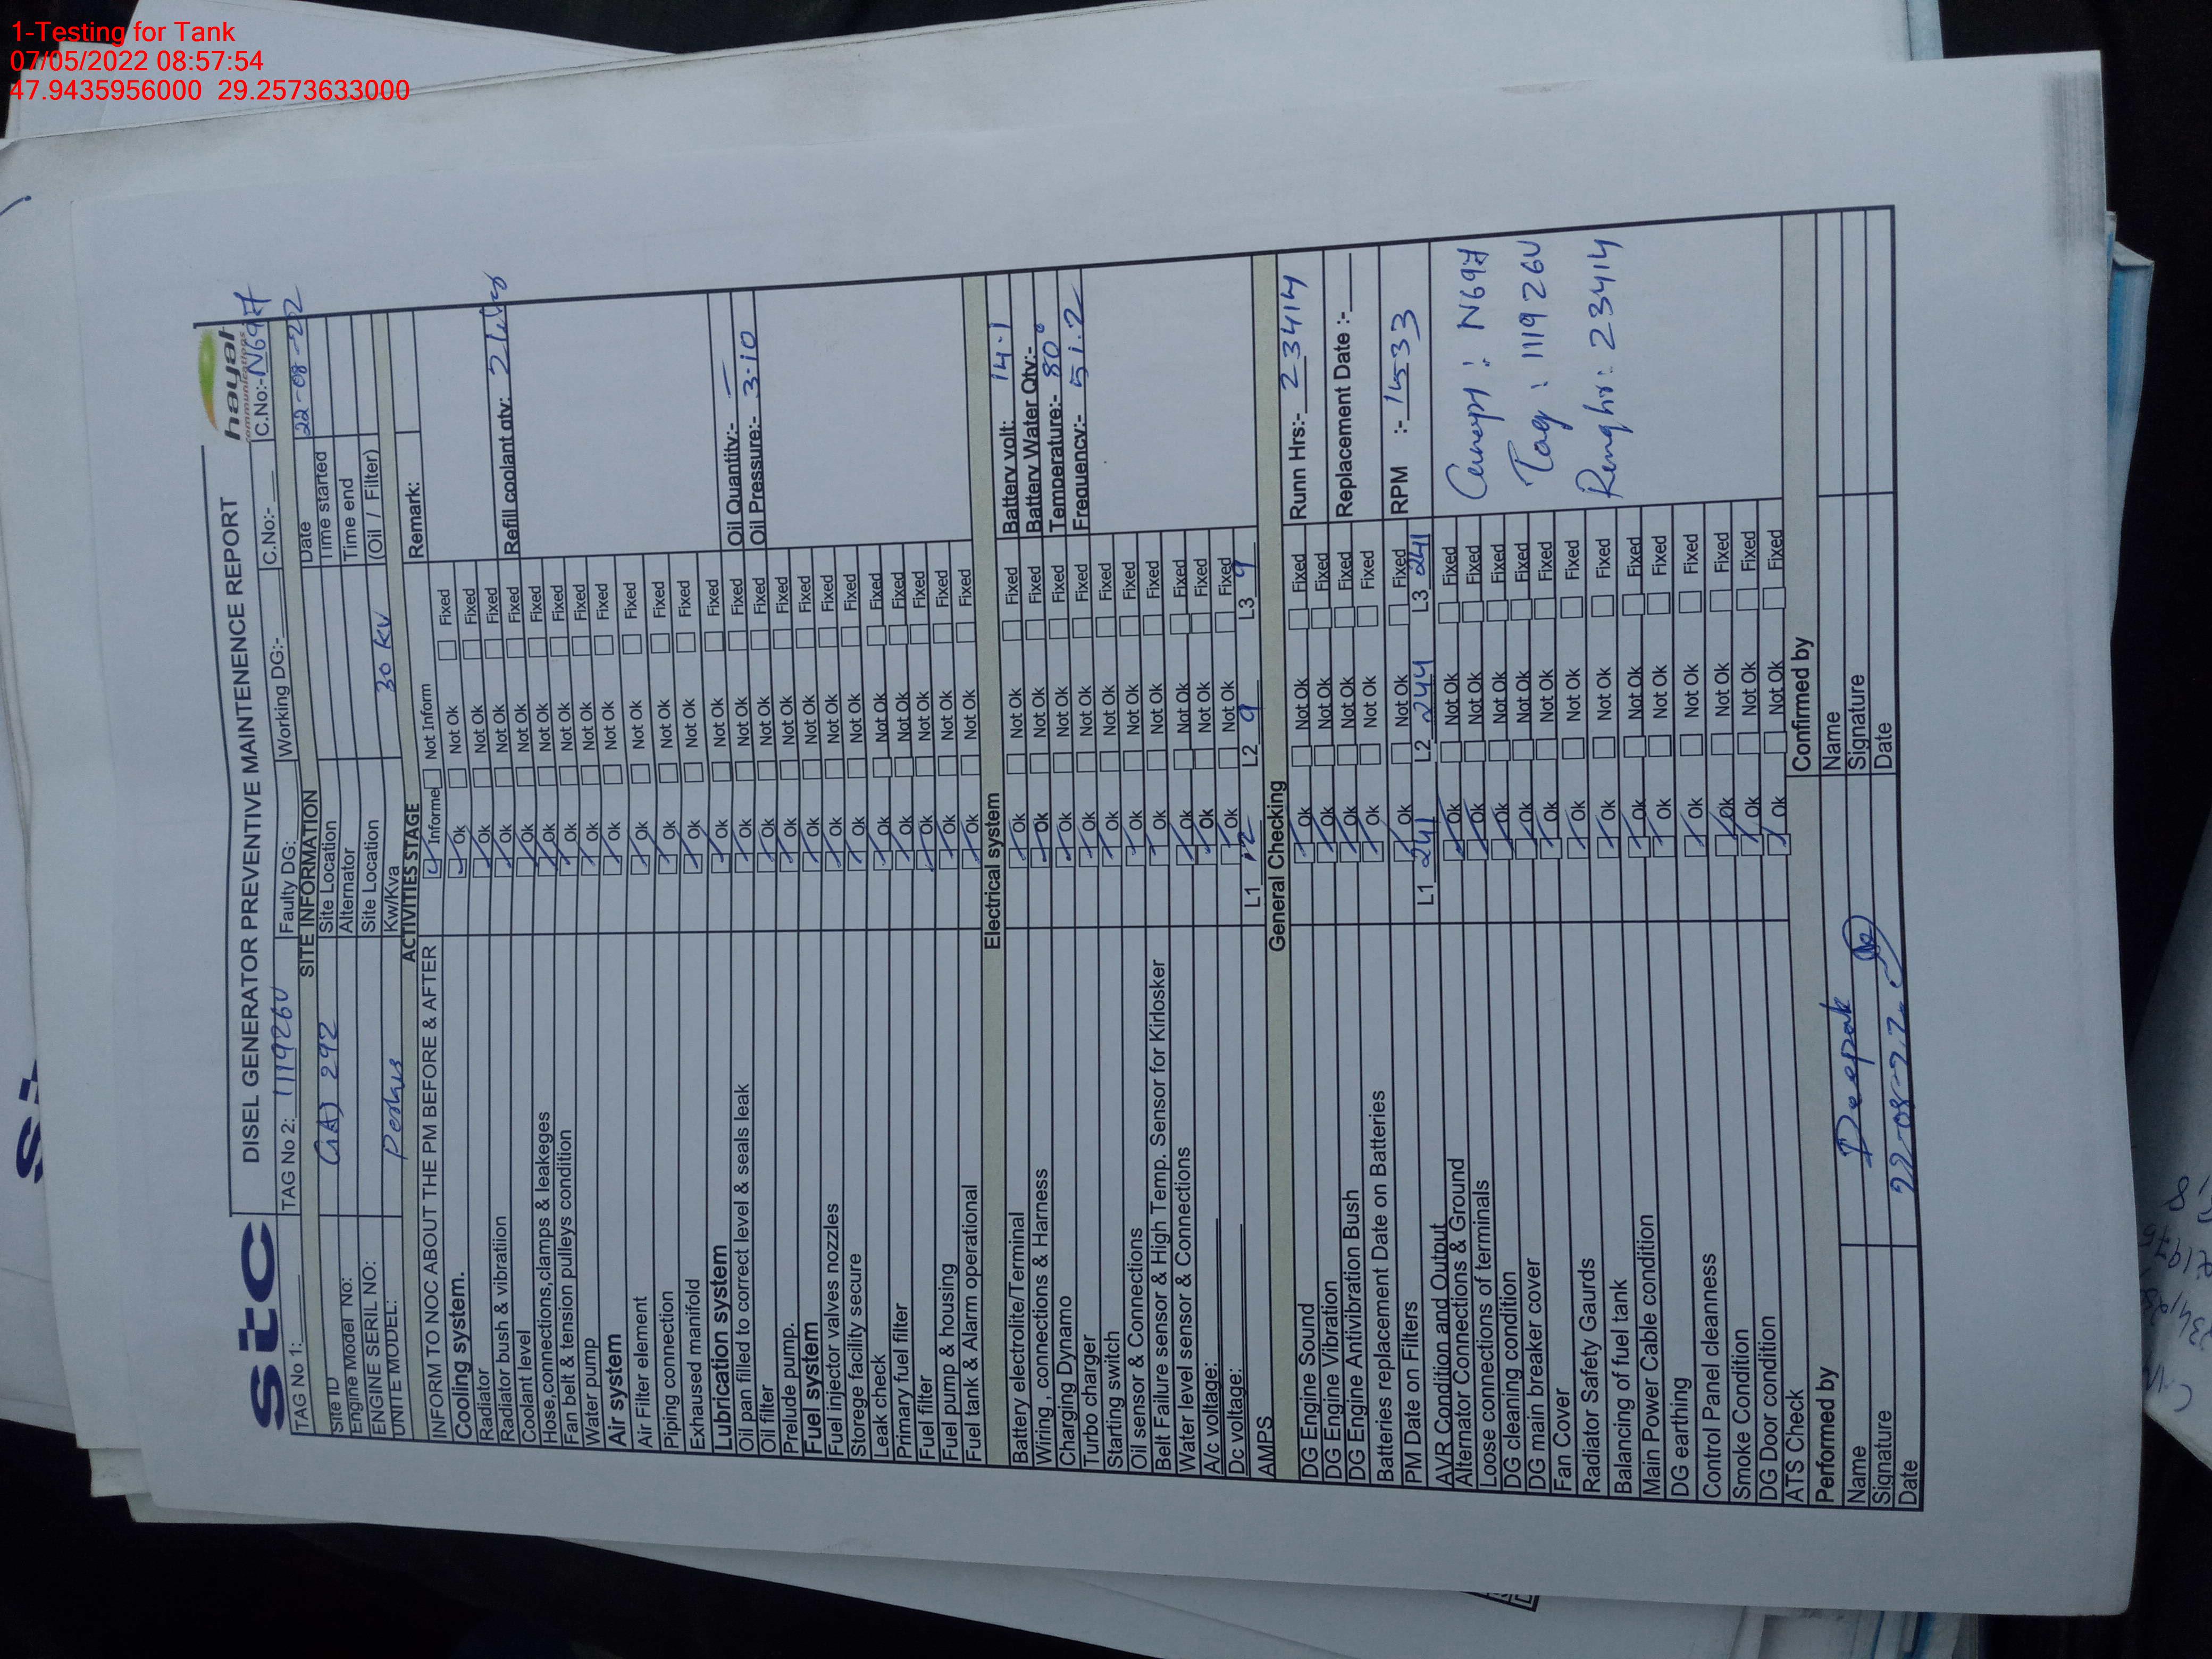 1-Testing for Tank
07/05/2022 08:57:54
47.9435956000 29.2573633000
stc
DISEL GENERATOR PREVENTIVE MAINTENENCE REPORT
hayat communications
TAG No 1: TAG No 2: 111926U Faulty DG: Working DG:- C.No:- C.No:- N697
SITE INFORMATION
Site ID 292 Site Location Date 22-08-22
Engine Model No: Alternator Time started
ENGINE SERIL NO: Site Location Time end
UNITE MODEL: Perkins Kw/Kva 30 KV (Oil / Filter)
ACTIVITIES STAGE
INFORM TO NOC ABOUT THE PM BEFORE & AFTER Informe Not Inform Remark:
Cooling system. Ok Not Ok Fixed
Radiator Ok Not Ok Fixed
Radiator bush & vibratiion Ok Not Ok Fixed
Coolant level Ok Not Ok Fixed Refill coolant qty: 2
Hose,connections,clamps & leakeges Ok Not Ok Fixed
Fan belt & tension pulleys condition Ok Not Ok Fixed
Water pump Ok Not Ok Fixed
Air system Ok Not Ok Fixed
Air Filter element Ok Not Ok Fixed
Piping connection Ok Not Ok Fixed
Exhaused manifold Ok Not Ok Fixed
Lubrication system Ok Not Ok Fixed
Oil pan filled to correct level & seals leak Ok Not Ok Fixed Oil Quantity:- —
Oil filter Ok Not Ok Fixed Oil Pressure:- 3.10
Prelude pump. Ok Not Ok Fixed
Fuel system Ok Not Ok Fixed
Fuel injector valves nozzles Ok Not Ok Fixed
Storege facility secure Ok Not Ok Fixed
Leak check Ok Not Ok Fixed
Primary fuel filter Ok Not Ok Fixed
Fuel filter Ok Not Ok Fixed
Fuel pump & housing Ok Not Ok Fixed
Fuel tank & Alarm operational Ok Not Ok Fixed
Electrical system
Battery electrolite/Terminal Ok Not Ok Fixed Battery volt: 14.1
Wiring , connections & Harness Ok Not Ok Fixed Battery Water Qty:-
Charging Dynamo Ok Not Ok Fixed Temperature:- 80°
Turbo charger Ok Not Ok Fixed Frequency:- 51.2
Starting switch Ok Not Ok Fixed
Oil sensor & Connections Ok Not Ok Fixed
Belt Failure sensor & High Temp. Sensor for Kirlosker Ok Not Ok Fixed
Water level sensor & Connections Ok Not Ok Fixed
A/c voltage: Ok Not Ok Fixed
Dc voltage: Ok Not Ok Fixed
AMPS L1 12 L2 9 L3 9
General Checking
DG Engine Sound Ok Not Ok Fixed Runn Hrs:- 23414
DG Engine Vibration Ok Not Ok Fixed
DG Engine Antivibration Bush Ok Not Ok Fixed Replacement Date :-
Batteries replacement Date on Batteries Ok Not Ok Fixed
PM Date on Filters Ok Not Ok Fixed RPM :- 1533
AVR Condition and Output L1 241 L2 244 L3 241
Alternator Connections & Ground Ok Not Ok Fixed
Loose connections of terminals Ok Not Ok Fixed N697
DG cleaning condition Ok Not Ok Fixed
DG main breaker cover Ok Not Ok Fixed Tag : 111926U
Fan Cover Ok Not Ok Fixed
Radiator Safety Gaurds Ok Not Ok Fixed 23414
Balancing of fuel tank Ok Not Ok Fixed
Main Power Cable condition Ok Not Ok Fixed
DG earthing Ok Not Ok Fixed
Control Panel cleanness Ok Not Ok Fixed
Smoke Condition Ok Not Ok Fixed
DG Door condition Ok Not Ok Fixed
ATS Check Ok Not Ok Fixed
Performed by Confirmed by
Name Deepak Name
Signature Signature
Date 22-08-22 Date